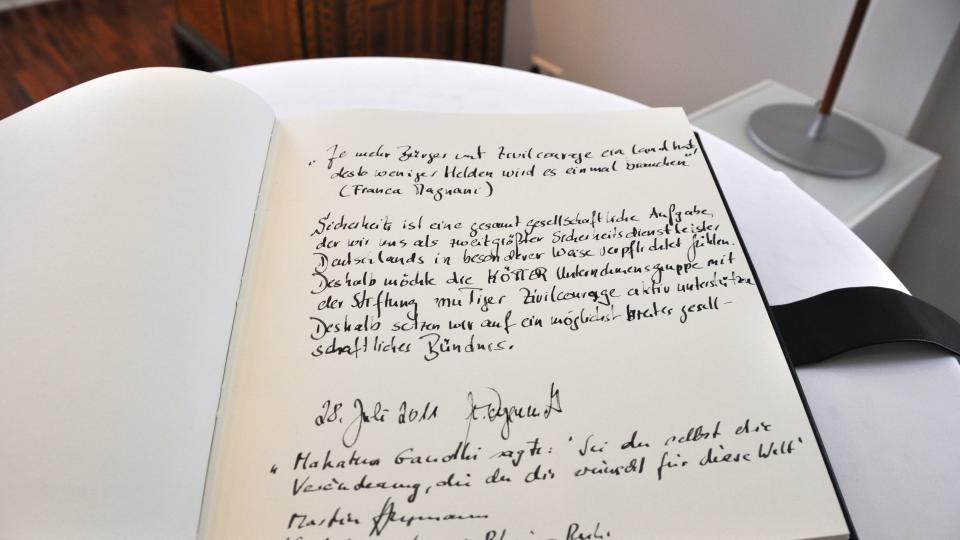 „Je mehr Bürger mit Zivilcourage ein Land hat,
desto weniger Helden wird es einmal brauchen"
(Franca Magnani)
Sicherheit ist eine gesamtgesellschaftliche Aufgabe,
der wir uns als zweitgrößter Sicherheitsdienstleister
Deutschlands in besonderer Weise verpflichtet fühlen.
Deshalb möchte die KÖTTER Unternehmensgruppe mit
der Stiftung mutiger Zivilcourage aktiv unterstützen
Deshalb setzen wir auf ein möglichst breiter gesell-
schaftliches Bündnis.
28. Juli 2011
„Mahatma Gandhi sagte: 'Sei du selbst die
Veränderung, die du dir wünscht für diese Welt'
Martin
Rhein-Ruhr